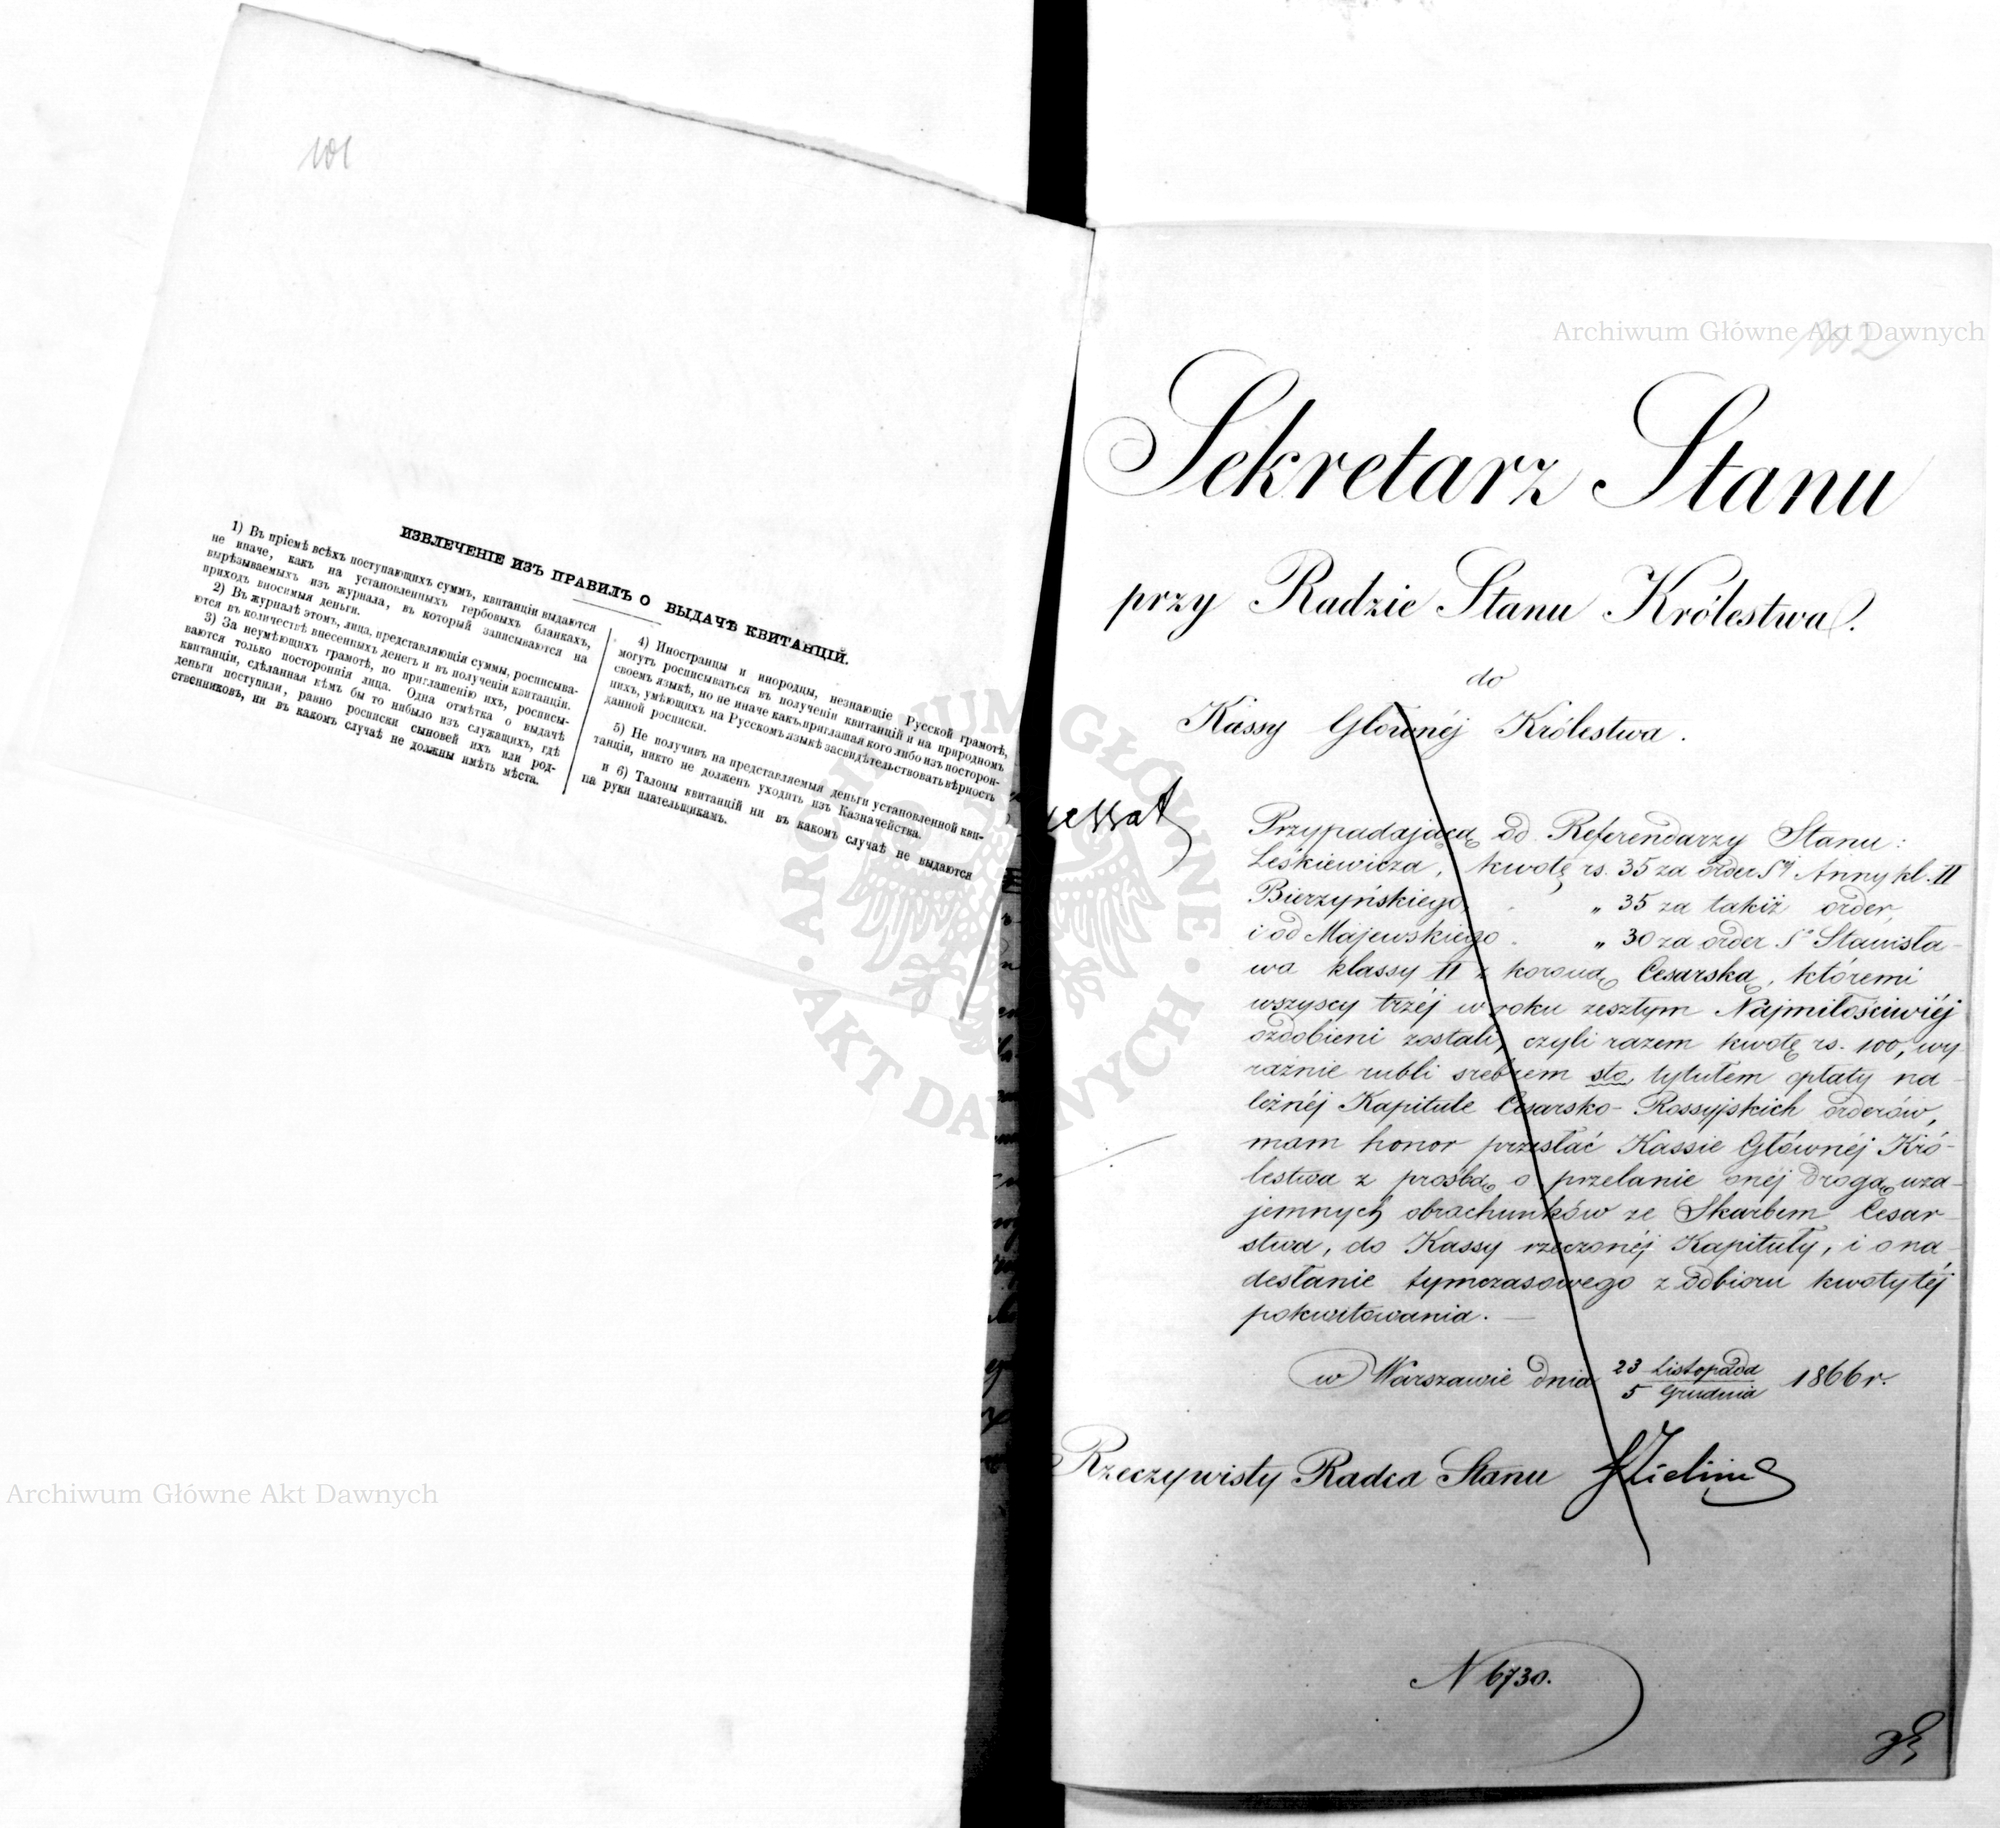 101
ИЗВЛЕЧЕНІЕ ИЗЪ ПРАВИЛЪ О ВЫДАЧѢ КВИТАНЦІЙ.
1) Въ пріемѣ всѣхъ поступающихъ суммъ, квитанціи выдаются
не иначе, какъ на установленныхъ гербовыхъ бланкахъ,
вырѣзываемыхъ изъ журнала, въ который записываются на
приходъ вносимыя деньги.
2) Въ журналѣ этомъ, лица, представляющія суммы, росписыва-
ются въ количествѣ внесенныхъ денегъ и въ полученіи квитанціи.
3) За неумѣющихъ грамотѣ, по приглашенію ихъ, росписы-
ваются только постороннія лица. Одна отмѣтка о выдачѣ
квитанціи, сдѣланная кѣмъ бы то нибыло изъ служащихъ, гдѣ
деньги поступили, равно росписки сыновей ихъ или род-
ственниковъ, ни въ какомъ случаѣ не должны имѣть мѣста.
4) Иностранцы и инородцы, незнающіе Русской грамотѣ,
могутъ росписываться въ полученіи квитанцій и на природномъ
своемъ языкѣ, но не иначе какъ приглашая кого либо изъ посторон-
нихъ, умѣющихъ на Русскомъ языкѣ засвидѣтельствовать вѣрность
данной росписки.
5) Не получивъ на представляемыя деньги установленной кви-
танціи, никто не долженъ уходить изъ Казначейства.
и 6) Талоны квитанцій ни въ какомъ случаѣ не выдаются
на руки плательщикамъ.
Archiwum Główne Akt Dawnych
ARCHIWUM GŁÓWNE
AKT DAWNYCH
Archiwum Główne Akt Dawnych
102
Sekretarz Stanu
przy Radzie Stanu Królestwa.
do
Kassy Głównéj Królestwa.
Przypadającą od Referendarzy Stanu:
Leśkiewicza, kwotę rs. 35 za order Sej Anny kl. II
Bierzyńskiego, „ 35 za takiż order,
i od Majewskiego „ 30 za order So Stanisła-
wa klassy II z koroną Cesarską, któremi
wszyscy trzéj w roku zeszłym Najmiłościwiéj
ozdobieni zostali, czyli razem kwotę rs. 100, wy-
raźnie rubli srebrem sto, tytułem opłaty na-
leżnéj Kapitule Cesarsko-Rossyjskich orderów,
mam honor przesłać Kassie Głównéj Kró-
lestwa z prośbą o przelanie onéj drogą wza-
jemnych obrachunków ze Skarbem Cesar-
stwa, do Kassy rzeczonéj Kapituły, i o na-
desłanie tymczasowego z odbioru kwoty téj
pokwitowania. —
w Warszawie dnia 23 Listopada / 5 Grudnia 1866 r.
Rzeczywisty Radca Stanu
N 6730.